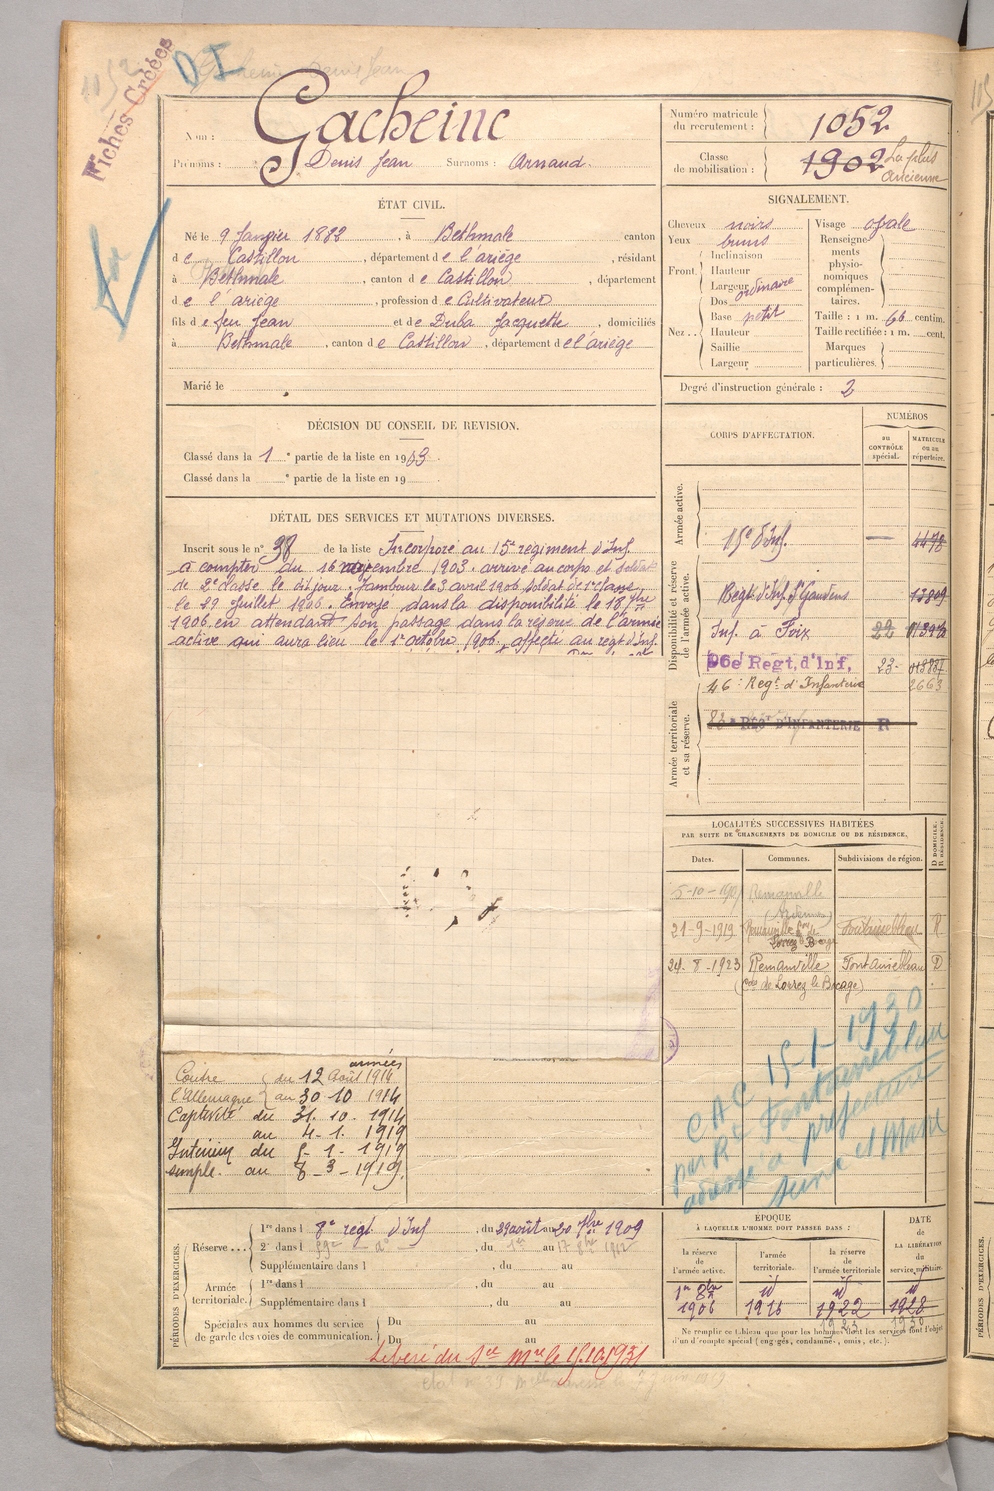 Fiches Créées
D I
Nom : Gacheinc
Prénoms : Denis Jean Surnoms : Arnaud.
Numéro matricule du recrutement : 1052
Classe de mobilisation : 1902 La plus ancienne
ÉTAT CIVIL.
Né le 9 Janvier 1882, à Bethmale canton
de Castillon, département de l'ariège, résidant
à Bethmale, canton de Castillon, département
de l'ariège, profession de Cultivateur
fils de feu Jean et de Duba Jacquette, domiciliés
à Bethmale, canton de Castillon, département de l'ariège
Marié le
SIGNALEMENT.
Cheveux noirs
Yeux bruns
Front Inclinaison
Hauteur
Largeur ordinaire
Nez Dos
Base petit
Hauteur
Saillie
Largeur
Visage ovale
Renseignements physionomiques complémentaires.
Taille : 1 m. 66 centim.
Taille rectifiée : 1 m. cent.
Marques particulières.
Degré d'instruction générale : 2
DÉCISION DU CONSEIL DE REVISION.
Classé dans la 1e partie de la liste en 1903.
Classé dans la e partie de la liste en 19
DÉTAIL DES SERVICES ET MUTATIONS DIVERSES.
Inscrit sous le n° 38 de la liste Incorporé au 15e régiment d'Inf.
à compter du 16 novembre 1903. arrivé au corps et soldat
de 2e classe le dit jour. Tambour le 3 avril 1906 soldat de 1re classe
le 29 Juillet 1906. Envoyé dans la disponibilité le 18 7bre
1906, en attendant son passage dans la réserve de l'armée
active qui aura lieu le 1er octobre 1906. affecté au régt d'Inf.
CORPS D'AFFECTATION.
NUMÉROS
au CONTRÔLE spécial.
MATRICULE ou au répertoire.
Armée active.
15e d'Inf. — 4478
Disponibilité et réserve de l'armée active.
Régt d'Inf. St Gaudens 13809
Inf. à Foix 22
Regt, d'Inf, 23
46e Regt d'Infanterie 2663
Armée territoriale et sa réserve.
RÉGt D'INFANTERIE R
LOCALITÉS SUCCESSIVES HABITÉES
PAR SUITE DE CHANGEMENTS DE DOMICILE OU DE RÉSIDENCE.
Dates. Communes. Subdivisions de région. D DOMICILE. R RÉSIDENCE.
21-9-1919 Fontainebleau R
24-8-1923 Remauville Fontainebleau D
(con de Lorrez le Bocage)
CAC 15-1-1930
par Rt Fontainebleau
adressé à préfecture
Seine et Marne
armées
Contre l'Allemagne du 12 Août 1914
au 30 10 1914
Captivité du 31. 10. 1914
au 4- 1. 1919
Intérieur du 5- 1- 1919
simple. au 8-3-1919.
PÉRIODES D'EXERCICES.
Réserve
1re dans l 8e régt d'Inf, du 29 août au 20 7bre 1909
2e dans l, du au
Supplémentaire dans l, du au
Armée territoriale.
1re dans l, du au
Supplémentaire dans l, du au
Spéciales aux hommes du service de garde des voies de communication.
Du au
Du au
Libéré du Sce Mre le 15.10.1931
ÉPOQUE
À LAQUELLE L'HOMME DOIT PASSER DANS :
la réserve de l'armée active.
l'armée territoriale.
la réserve de l'armée territoriale
DATE de LA LIBÉRATION du service militaire.
1er 8bre 1906
id 1916
id 1922
id 1928
1923 1930
Ne remplir ce tableau que pour les hommes dont les services font l'objet
d'un décompte spécial (engagés, condamnés, omis, etc.).
PÉRIODES D'EXERCICES.